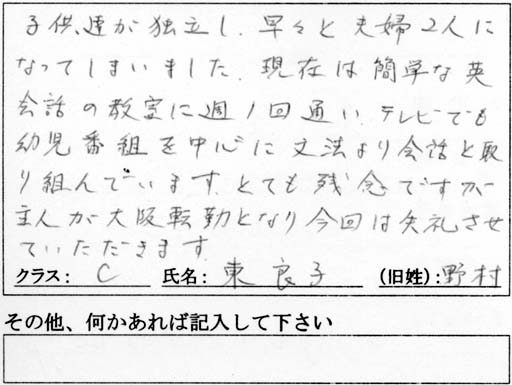 子供達が独立し、早々と夫婦2人に
なってしまいました。現在は簡単な英
会話の教室に週1回通い、テレビでも
幼児番組を中心に文法より会話と取
り組んでいます。とても残念ですが
主人が大阪転勤となり今回は失礼させ
ていただきます。
クラス: C 氏名: 東良子 (旧姓): 野村
その他、何かあれば記入して下さい